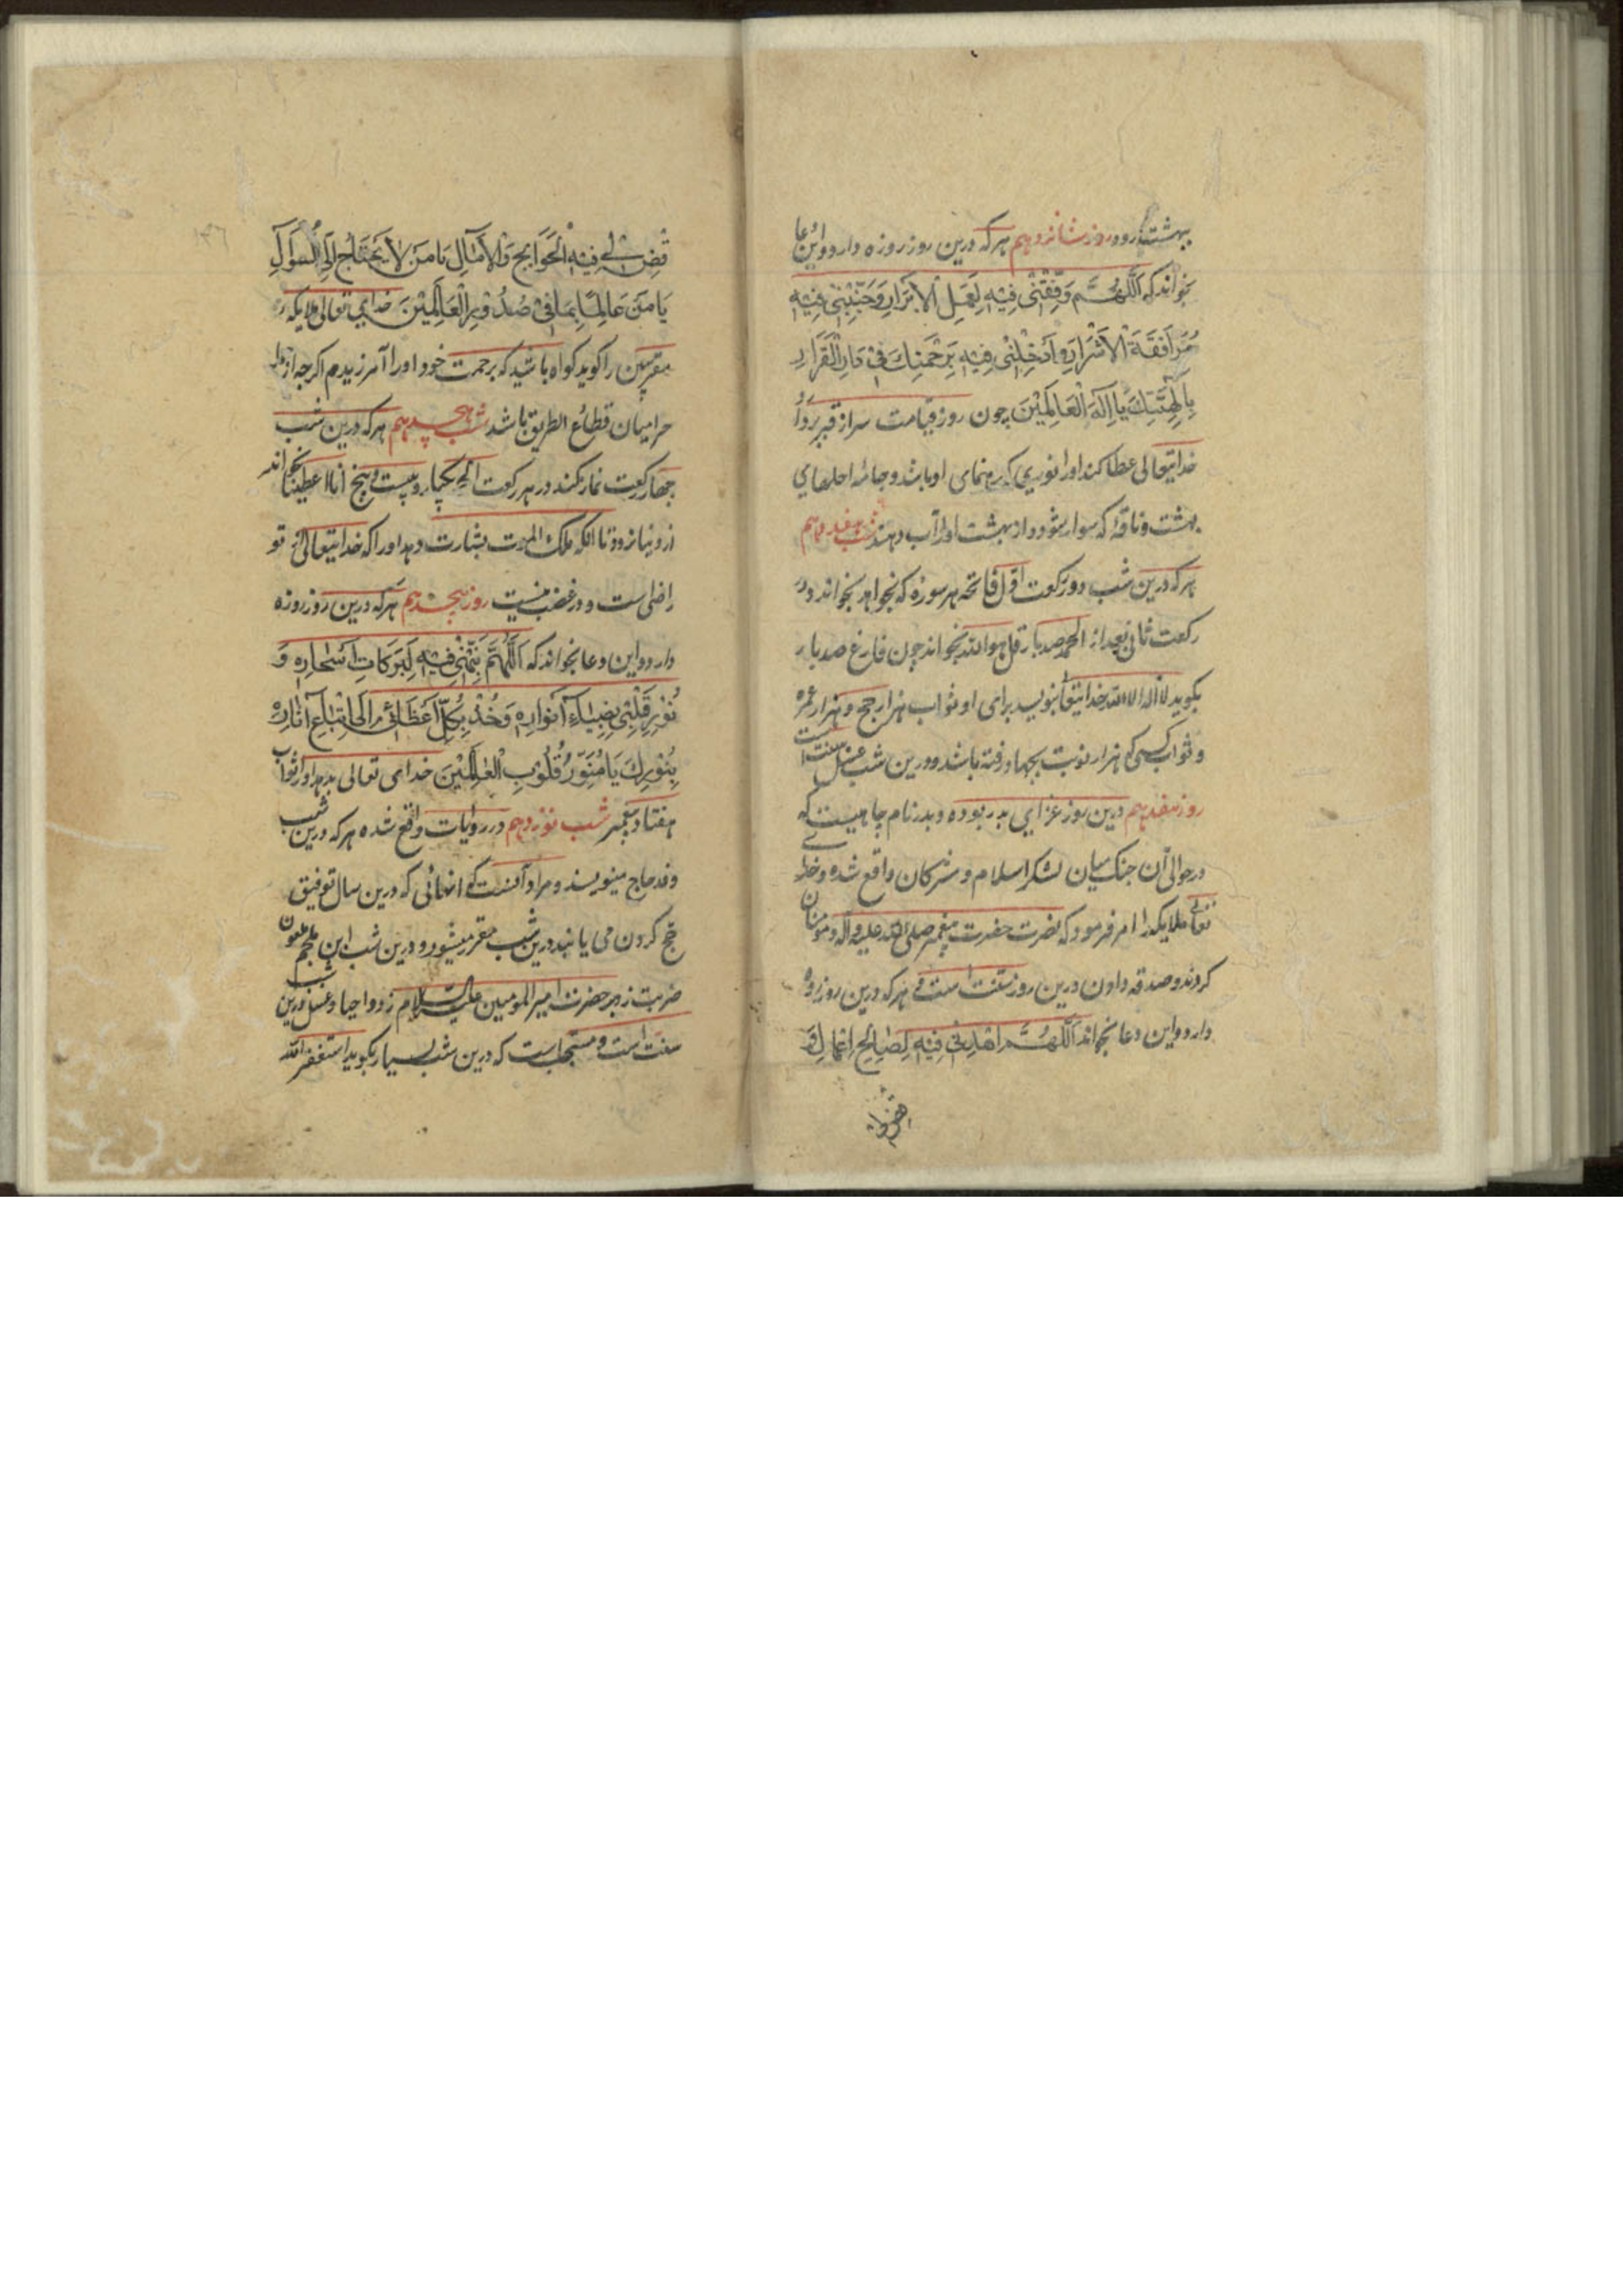 بهشت رود روز شانزدهم هرکه درین روز روزه دارد و این دعا
بخواند که اَللّٰهُمَّ وَفِّقْنِی فِیْهِ لِعَمَلِ الْاَبْرَارِ وَجَنِّبْنِی فِیْهِ
مُرَافَقَةَ الْاَشْرَارِ وَاَدْخِلْنِی فِیْهِ بِرَحْمَتِكَ فِی دَارِ الْقَرَارِ
بِاِلٰهِیَّتِكَ یَا اِلٰهَ الْعَالَمِیْنَ چون روز قیامت سر از قبر بردارد
خدایتعالی عطا کند اورا نوری که رهنمای او باشد و جامه احلهای
بهشت و ناقهٔ که سوار شود و از بهشت اورا آب دهند شب هفدهم
هرکه درین شب دو رکعت اول فاتحه هر سوره که بخواهد بخواند و در
رکعت ثانی بعد از الحمد صد بار قل هو الله بخواند چون فارغ صد بار
بکوید لا اله الا الله خدایتعا بنویسد برای او ثواب هزار حج و هزار عمره
و ثواب کسی که هزار نوبت بجهاد رفته باشد و درین شب غسل سنت است
روز هفدهم درین روز غزای بدر بوده و بدر نام چاهیست که
در حوالی آن جنک میان لشکر اسلام و مشرکان واقع شده و خدای
تعالی ملایکه را امر فرمود که نصرت حضرت پیغمبر صلی الله علیه وآله و مومنان
کردند و صدقه دادن درین روز سنت است هرکه درین روز روزه
دارد و این دعا بخواند اَللّٰهُمَّ اهْدِنِی فِیْهِ لِصَالِحِ اعْمَالِ وَ
اقض لی فِیْهِ الْحَوَائِجَ وَالْاٰمَالَ یَا مَنْ لَا یَحْتَاجُ اِلَی السُّوَالِ
یَا مَنْ عَالِمًا بِمَا فِی صُدُوْرِ الْعَالَمِیْنَ خدای تعالی ملایکه
مقربین را کوید کواه باشید که برحمت خود اورا آمرزیدم اکرچه از
حرامیان قطاع الطریق باشد شب هجدهم هرکه درین شب
چهار رکعت نماز کند در هر رکعت الحمد یکبار و بیست و پنج انا اعطیناک بخواند
از دنیا نرود تا انکه ملک الموت بشارت دهد اورا که خدایتعالی از تو
راضی است و در غضب نیست روز هجدهم هرکه درین روز روزه
دارد و این دعا بخواند که اَللّٰهُمَّ نَبِّهْنِی فِیْهِ لِبَرَكَاتِ اَسْحَارِهِ وَ
نُوّرِ قَلْبِی بِضِیَاءِ اَنْوَارِهِ وَخُذْ بِكُلِّ اَعْضَائِی اِلَی اتِّبَاعِ اٰثَارِهِ
بِنُوْرِكَ یَا مُنَوِّرَ قُلُوْبِ الْعَالَمِیْنَ خدای تعالی بدهد اورا ثواب
هفتاد پیغمبر شب نوزدهم در روایات واقع شده هرکه درین شب
وفد حاج مینویسند و مراد آنست که انهائی که درین سال توفیق
حج کردن می یابند درین شب مقرر میشود و درین شب ابن ملجم ملعون
ضربت زد بر حضرت امیر المومنین علیه السلام زد و احیا و غسل درین شب
سنت است و مستحب است که درین شب بسیار بکوید استغفر الله